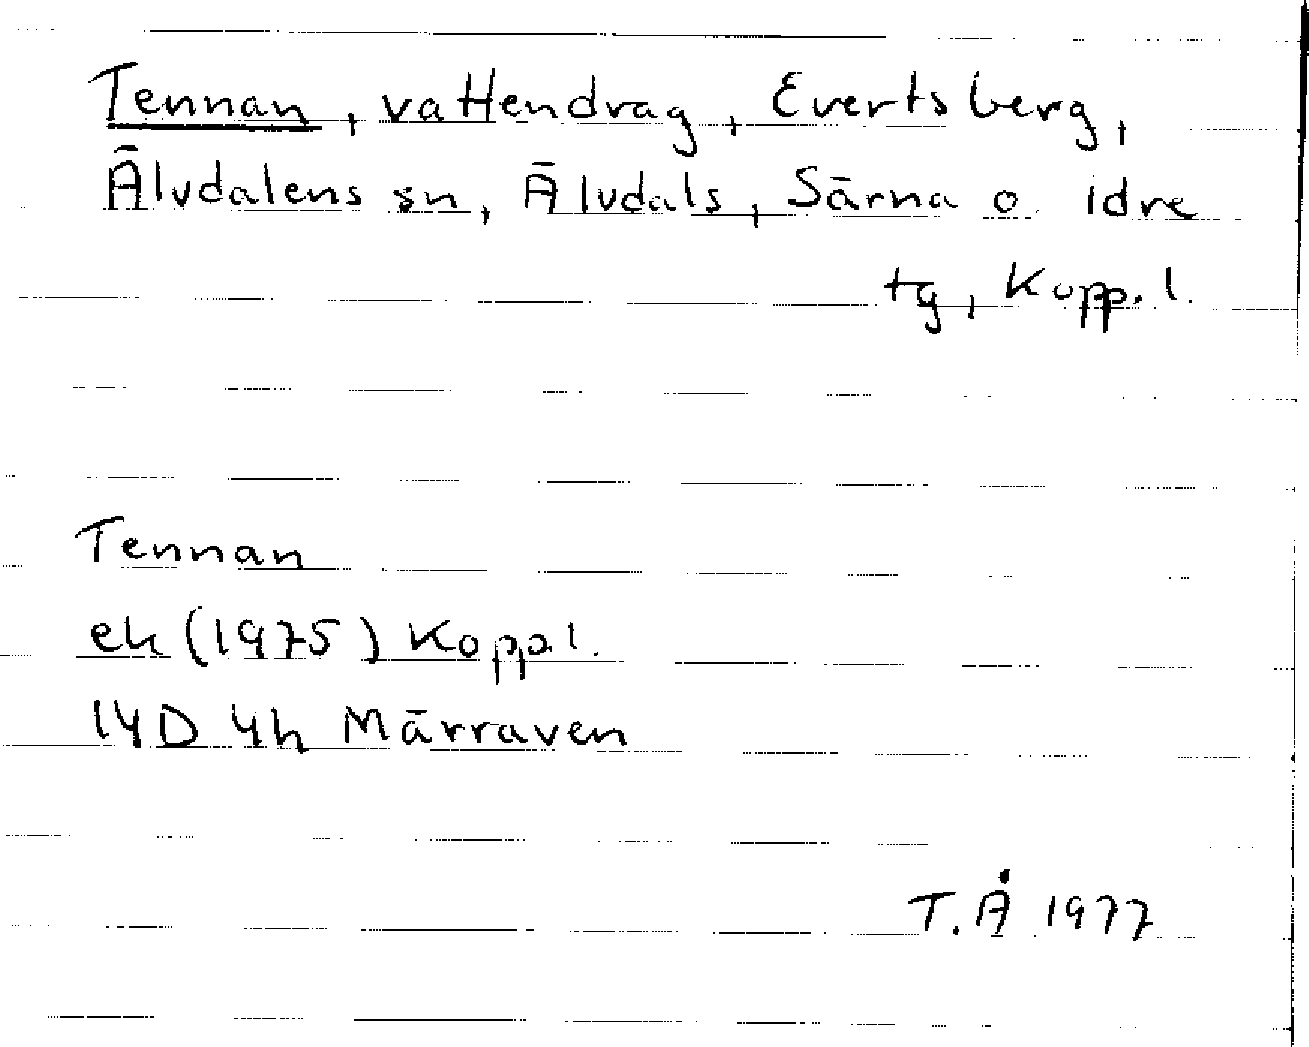 Tennan, vattendrag, Evertsberg,
Älvdalens sn, Älvdals, Särna o Idre
tg, Kopp. l.
Tennan
ek (1975) Kopp. l.
14D 4h Märraven
T.Å 1977